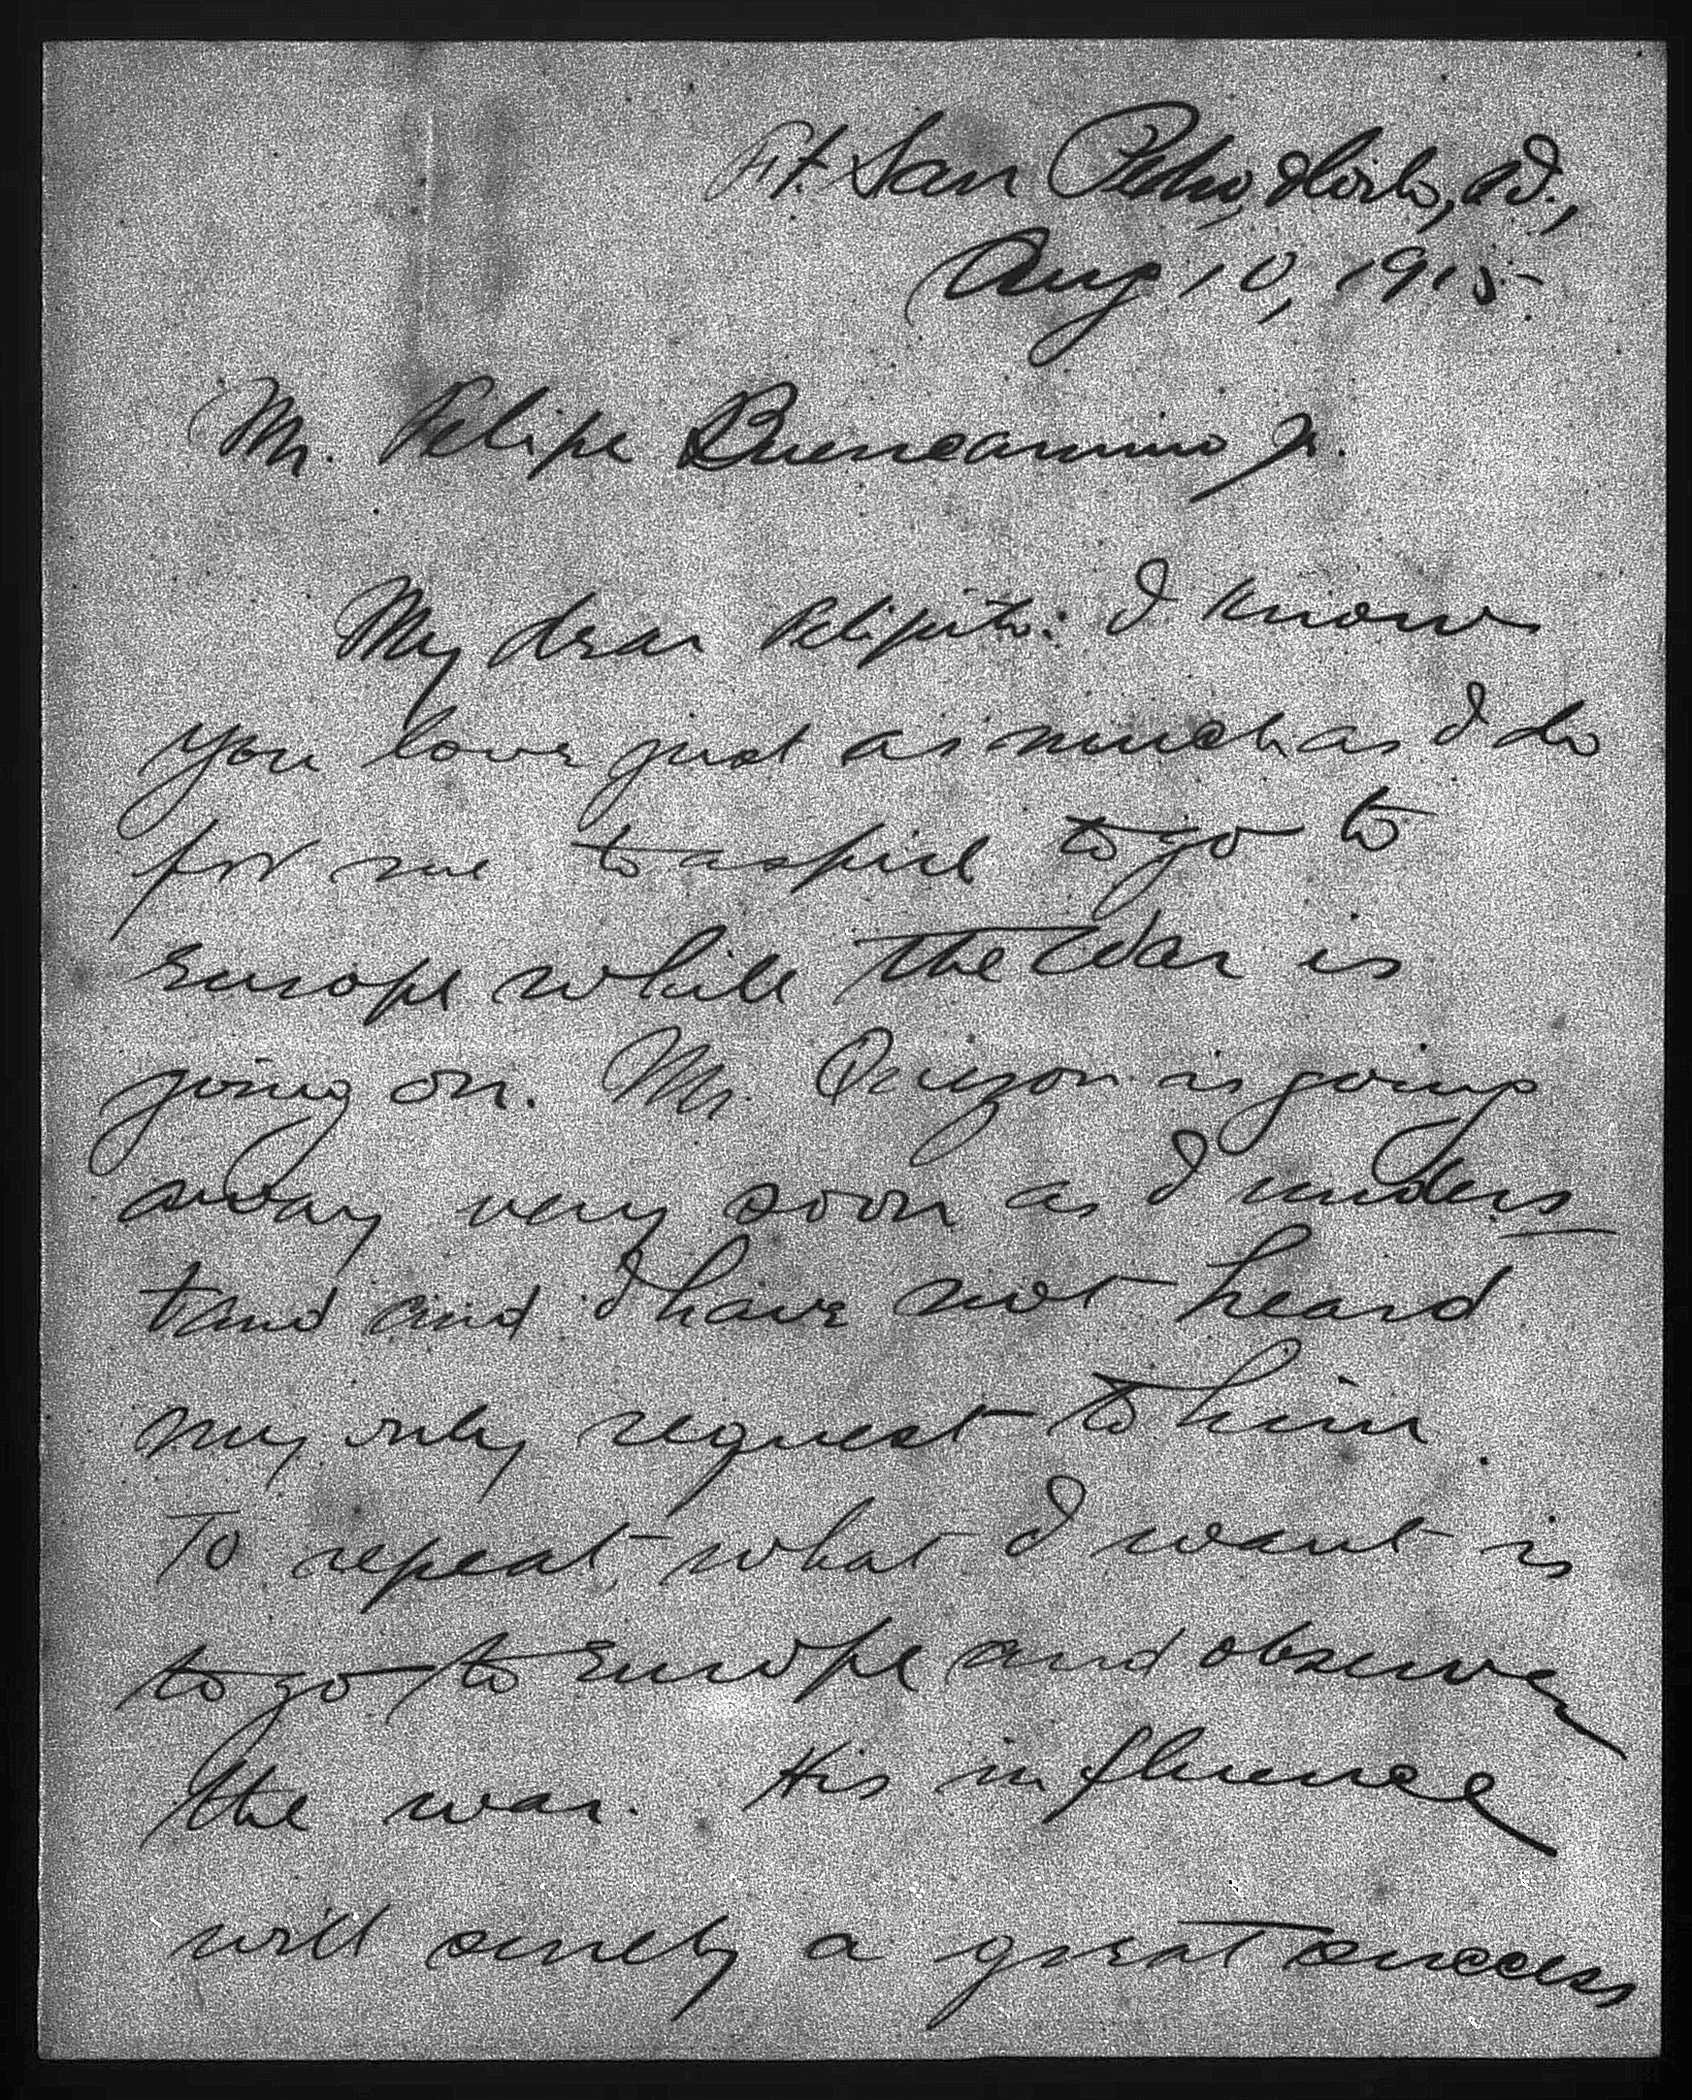 Ft. San Pedro, Iloilo,
Aug 10, 1915
Mr. Felipe Buencamino Jr.
My dear Felipito: I know
you love just as much as I do
for me to aspire to go to
Europe while the War is
going on. Mr. Quezon is going
away very soon as I unders
tand and I have not heard
my only request to him.
To repeat, what I want is
to go to Europe and observe
the war. His influence
will surely a great success